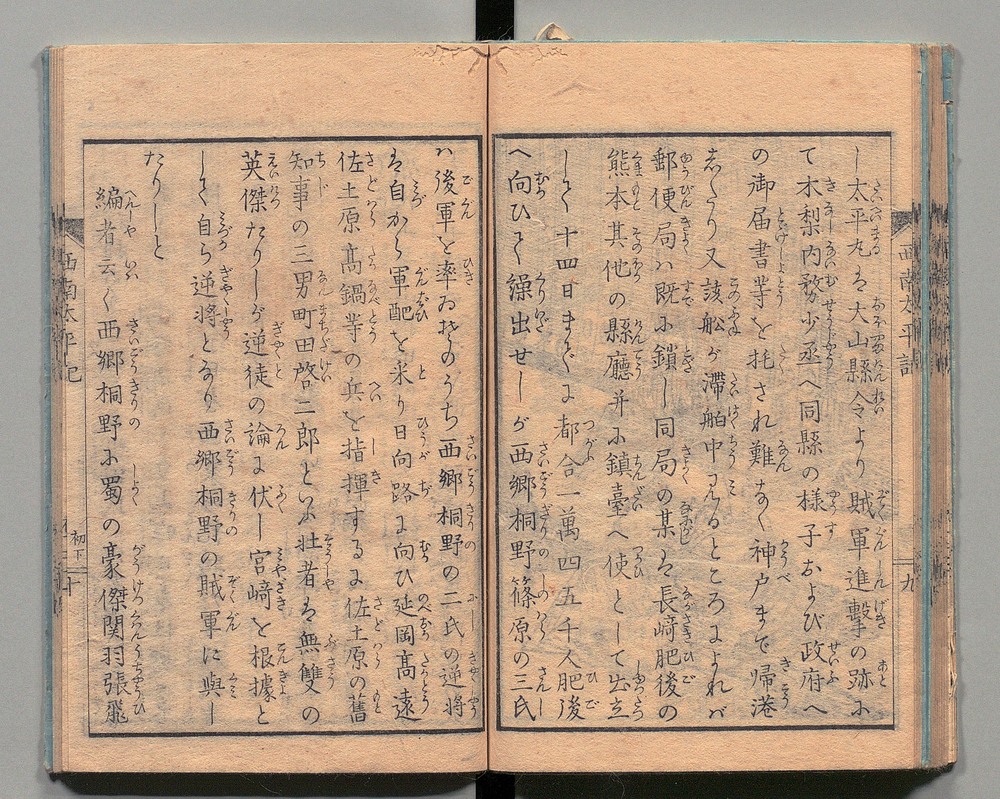 し太平丸は大山縣令より賊軍進撃の弥に
て木梨内務少丞へ同縣の様子および政府へ
の御届書等を托され難なく神戸まで帰港
したり又該舩が滞舶中見るところによれバ
郵便局ハ既に鎖し同局の某は長﨑肥後の
熊本其他の縣廳并に鎮臺へ使として出立
しく十四日までに都合一萬四五千人肥後
へ向ひて繰出せしが西郷桐野篠原の三氏
ハ後軍を率ゐそのうち西郷桐野の二氏の逆将
は自から軍配を采り日向路に向ひ延岡髙遠
佐土原髙鍋等の兵を指揮するに佐土原の舊
知事の三男町田啓二郎といふ壮者は無雙の
英傑たりしが逆徒の論に伏し宮﨑を根據と
して自ら逆将となり西郷桐野の賊軍に與し
たりしと
編者云く西郷桐野に蜀の豪傑関羽張飛
西南太平記
初下
九
西南太平記
初下
十